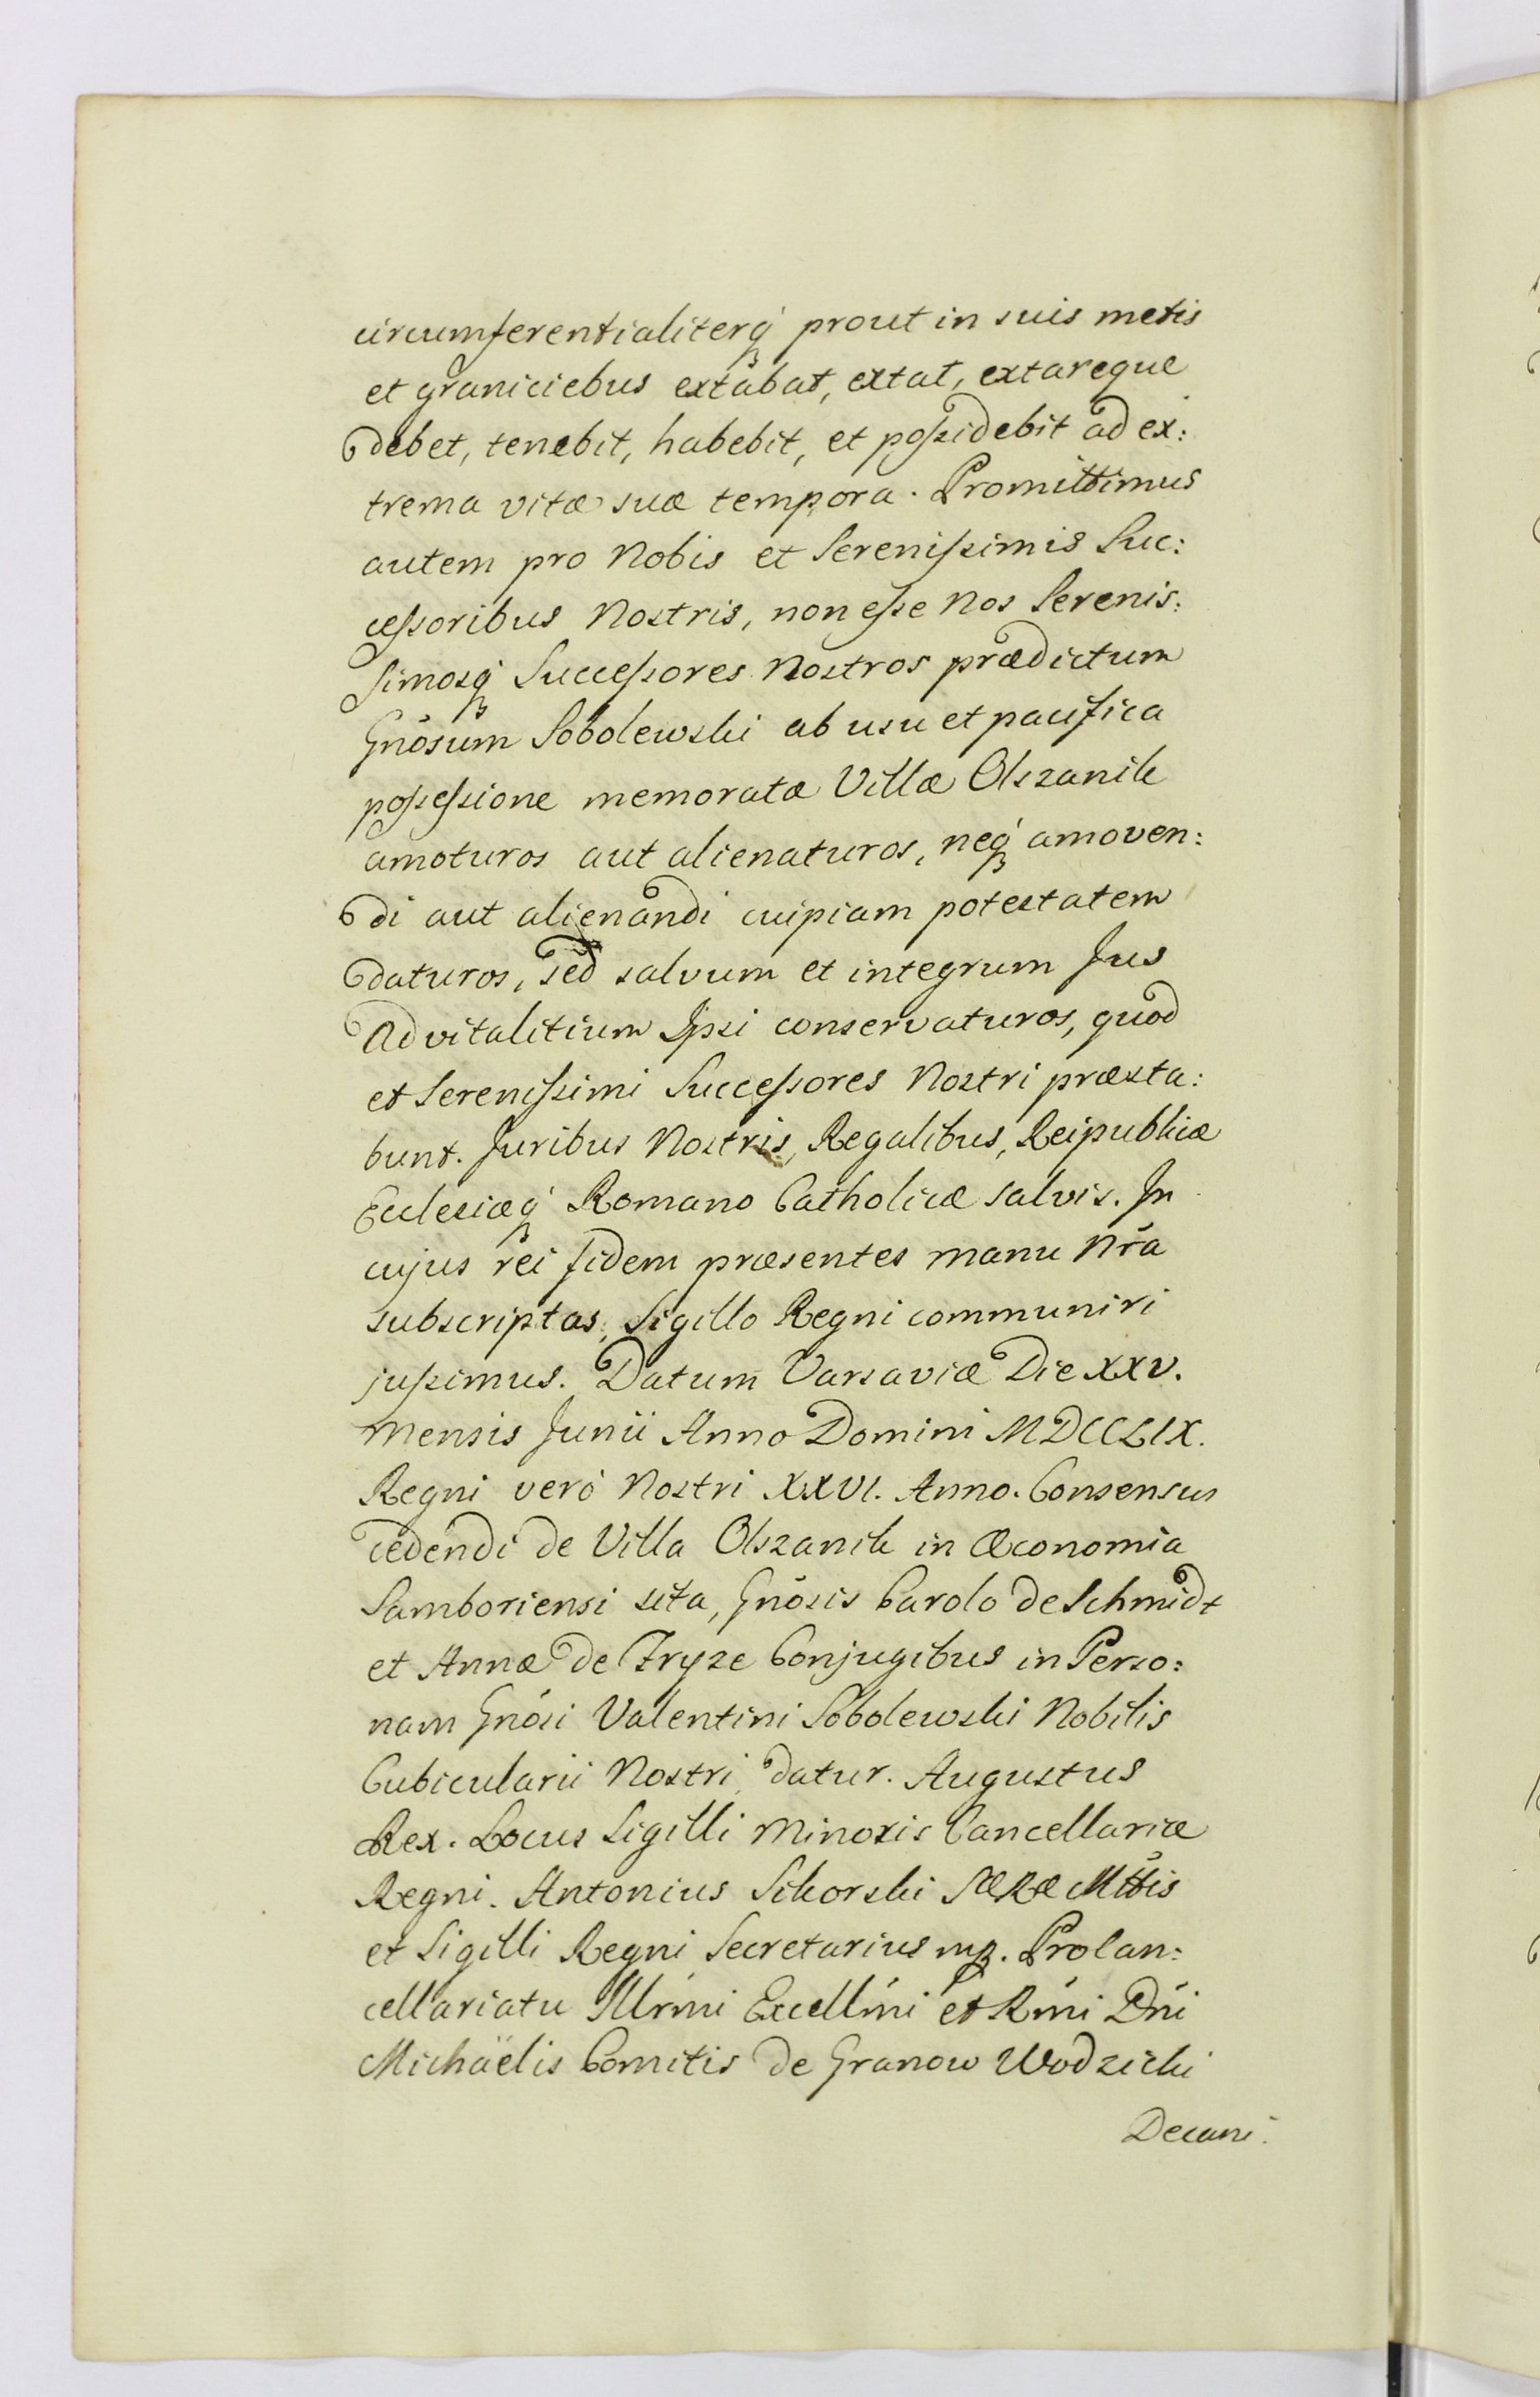 circumferentialiterq́ꝫ prout in suis metis
et graniciebus extabat, extat, extareque
debet, tenebit, habebit, et poſsidebit ad ex:
trema vitæ suæ tempora. Promittimus
autem pro Nobis et Sereniſsimis Suc:
ceſsoribus Nostris, non eſse Nos Serenis:
simosq́ꝫ Succeſsores Nostros prædictum
Gnōsum Sobolewski ab usu et pacifica
poſseſsione memoratæ Villæ Olszanik
amoturos aut alienaturos, neq́ꝫ amoven:
di aut alienandi cuipiam potestatem
daturos, sed salvum et integrum Jus
Advitalitium Ipsi conservaturos, quod
et Sereniſsimi Succeſsores Nostri præsta:
bunt. Juribus Nostris, Regalibus, Reipublicæ
Ecclesiæq́ꝫ Romano Catholicæ salvis. In
cujus rei fidem præsentes manu Nrā
subscriptas, Sigillo Regni communiri
juſsimus. Datum Varsaviæ Die XXV.
Mensis Junii Anno Domini MDCCLIX.
Regni verò Nostri XXVI. Anno. Consensus
cedendi de Villa Olszanik in Œconomia
Samboriensi sita, Gnōsis Carolo de Schmidt
et Annæ de Fryze Conjugibus in Perso:
nam Gnōsi Valentini Sobolewski Nobilis
Cubicularii Nostri datur. Augustus
Rex. Locus Sigilli Minoris Cancellariæ
Regni. Antonius Sikorski SæRæ Mttis
et Sigilli Regni Secretarius mp. Procan:
cellariatu Illrmi Excellmi et Rmi Dni
Michaëlis Comitis de Granow Wodzicki
Decani